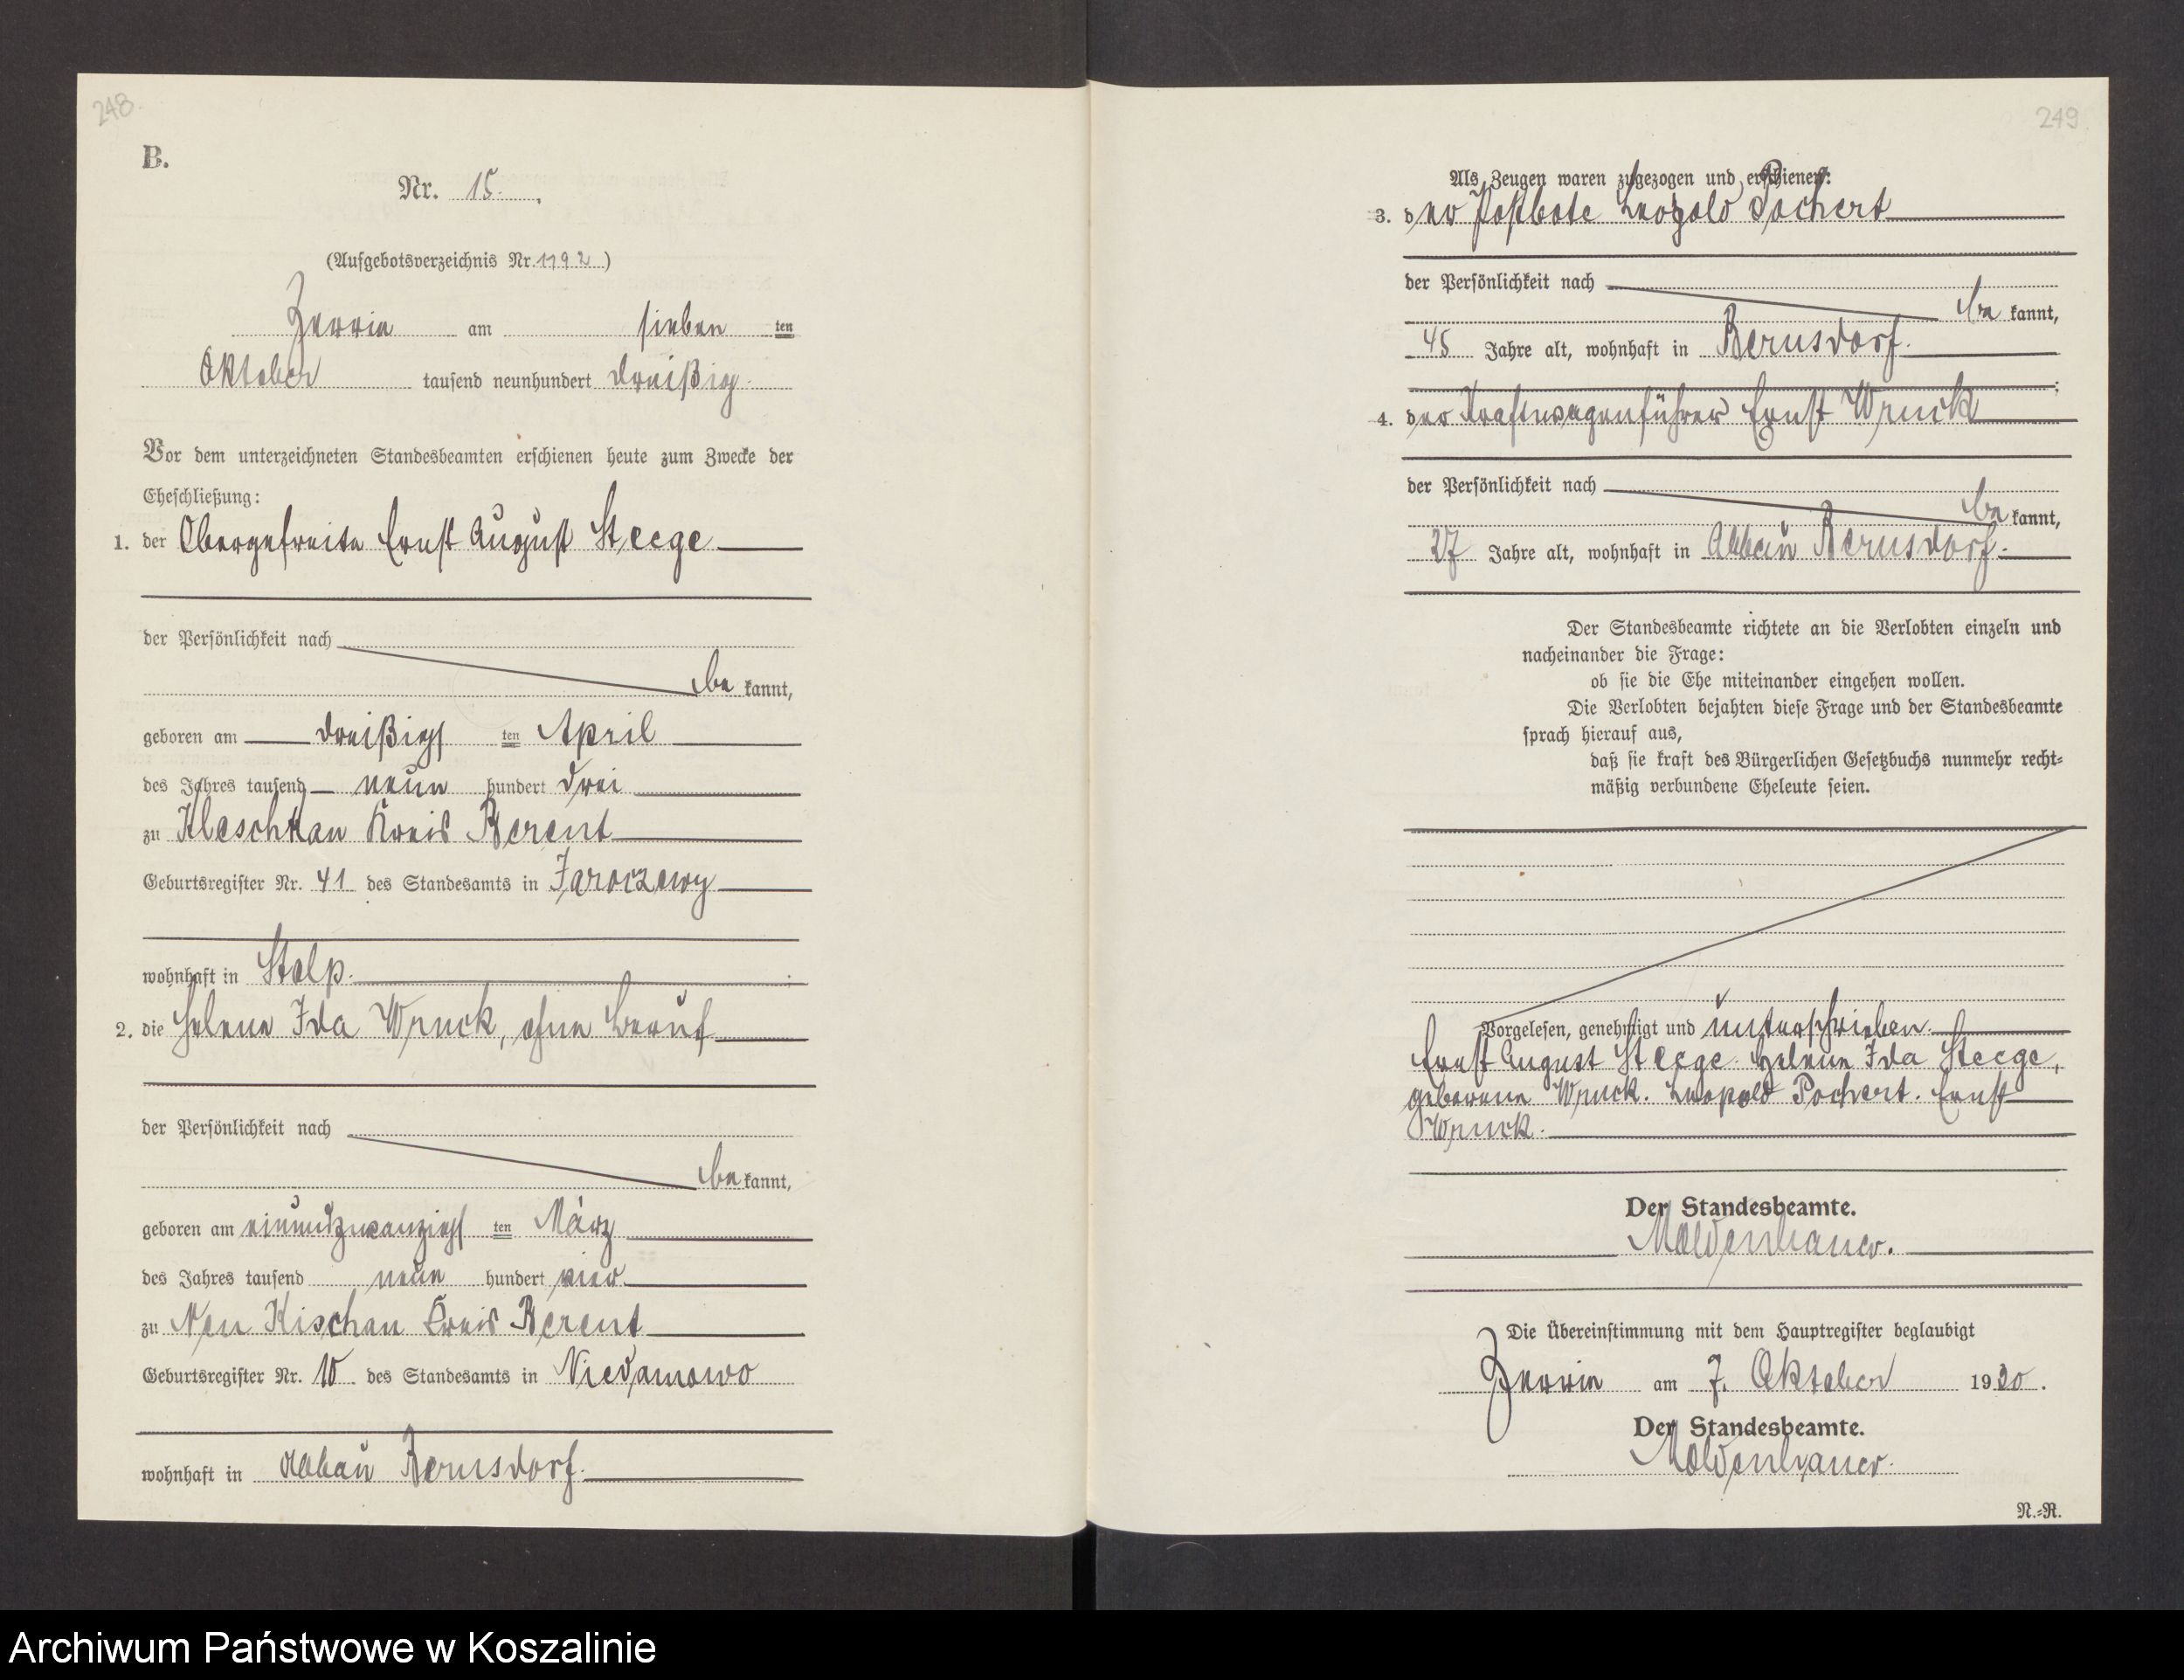 248.
B.
Nr. 15.
(Aufgebotsverzeichnis Nr. 1192)
Zerrin am sieben ten
Oktober tausend neunhundert dreißig.
Vor dem unterzeichneten Standesbeamten erschienen heute zum Zwecke der
Eheschließung:
1. der Obergefreite Ernst August Steege
der Persönlichkeit nach
be kannt,
geboren am dreißigs ten April
des Jahres tausend neun hundert drei
zu Kleschkau Kreis Berent
Geburtsregister Nr. 41 des Standesamts in Jaroczewy
wohnhaft in Stolp.
2. die Helene Ida Wruck, ohne Beruf
der Persönlichkeit nach
be kannt,
geboren am einundzwanzigs ten März
des Jahres tausend neun hundert vier
zu Neu Kischau Kreis Berent
Geburtsregister Nr. 10 des Standesamts in Niedamowo
wohnhaft in Abbau Bernsdorf.
249
Als Zeugen waren zugezogen und erschienen:
3. der Postbote Leopold Pochert
der Persönlichkeit nach
be kannt,
45 Jahre alt, wohnhaft in Bernsdorf.
4. der Kraftwagenführer Ernst Wruck
der Persönlichkeit nach
be kannt,
27 Jahre alt, wohnhaft in Abbau Bernsdorf.
Der Standesbeamte richtete an die Verlobten einzeln und
nacheinander die Frage:
ob sie die Ehe miteinander eingehen wollen.
Die Verlobten bejahten diese Frage und der Standesbeamte
sprach hierauf aus,
daß sie kraft des Bürgerlichen Gesetzbuchs nunmehr recht-
mäßig verbundene Eheleute seien.
Vorgelesen, genehmigt und unterschrieben.
Ernst August Steege. Helene Ida Steege,
geborene Wruck. Leopold Pochert. Ernst
Wruck.
Der Standesbeamte.
Moldenhauer.
Die Übereinstimmung mit dem Hauptregister beglaubigt
Zerrin am 7. Oktober 1930.
Der Standesbeamte.
Moldenhauer.
N.-R.
Archiwum Państwowe w Koszalinie